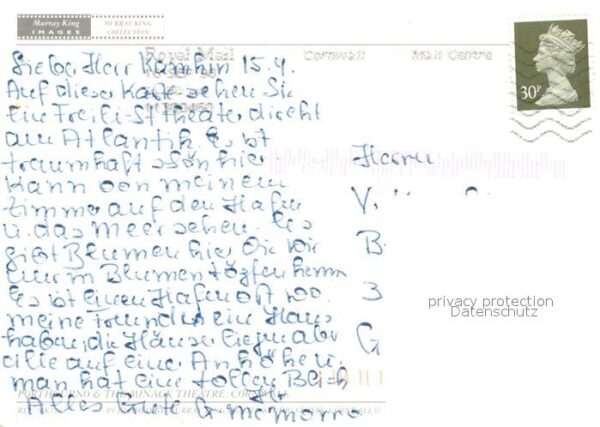 Murray King
IMAGES
MURRAY KING
COLLECTION
Royal Mail Cornwall Mail Centre
30P
Lieber Herr 15.9.
Auf dieser Karte sehen Sie
ein Freilichttheater direkt
am Atlantik. Es ist
traumhaft schön hier
kann von meinem
Zimmer auf den Hafen
u. das Meer sehen. Es
gibt Blumen hier die wir
nur in Blumentöpfen kennen
Es ist einen Hafenort wo
meine Freunde ein Haus
haben, die Häuser liegen
auf eine Anhöhe u.
man hat eine tollen Blick
Alles Gute
Herrn
V
B
3
G
privacy protection
Datenschutz
PORTHCURNO & THE MINACK THEATRE, CORNWALL